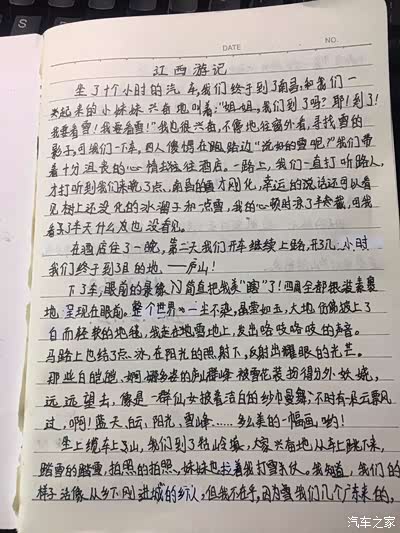 DATE NO.
江西游记
坐了十个小时的汽车,我们终于到了南昌,和我们一
起来的小妹妹兴奋地叫着:"姐姐,我们到了吗?耶!到了!
我要看雪!我要看雪!"我也很兴奋,不停地往窗外看,寻找雪的
影子,可我们一下车,四人傻愣在路边"说好的雪呢?"我们带
着十分沮丧的心情找往酒店,一路上,我们一直打听路人,
才打听到我们来晚了点,南昌的雪才刚化,幸运的说话还可以看
见树上还没化的冰溜子和一点雪,我的心顿时凉了半截,可我
看了半天什么发也没看见。
在酒店住了一晚,第二天我们开车继续上路,开了几小时
我们终于到了目的地——庐山!
下了车,眼前的景像简直把我美"瞎"了!四周全都银装素裹
地呈现在眼前,整个世界一尘不染,晶莹如玉,大地仿佛披上了
白而轻软的地毯,我走在地雪地上,发出咯吱咯吱的声音。
马路上也结了点冰,在阳光的照射下,反射出耀眼的光芒。
那些白皑皑、婀娜多姿的庐山群峰被雪花装扮得分外妖娆,
远远望去,像是一群仙女披着洁白的纱巾曼舞;不时有一朵云飘风
过,啊!蓝天、白云、阳光、雪峰……多么美的一幅画哟!
坐上缆车上了山,我们到了牯岭镇,大家兴奋地从车上跳下来,
踏雪的踏雪,拍照的拍照,妹妹也拉着我打雪仗。我知道,我们的
样子活像从乡下刚进城的纺人,但我不在乎,因为雪我们几个广东来的,
汽车之家